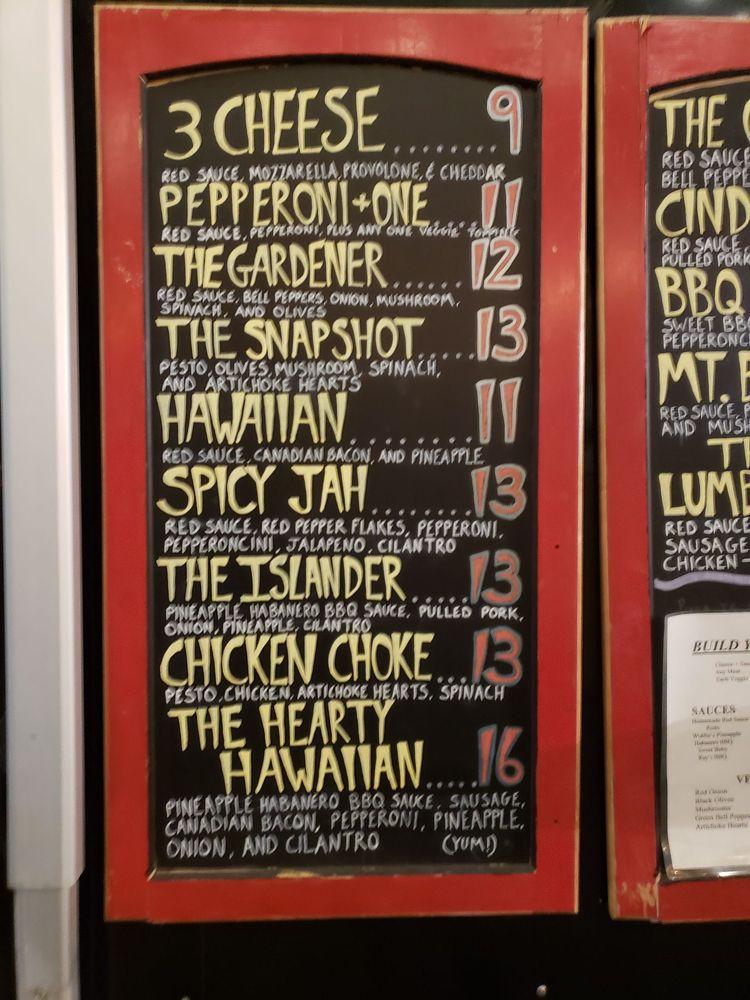 3 CHEESE ........ 9
RED SAUCE, MOZZARELLA, PROVOLONE, & CHEDDAR
PEPPERONI + ONE .... 11
RED SAUCE, PEPPERONI, PLUS ANY ONE VEGGIE TOPPING
THE GARDENER ...... 12
RED SAUCE, BELL PEPPERS, ONION, MUSHROOM,
SPINACH, AND OLIVES
THE SNAPSHOT ..... 13
PESTO, OLIVES, MUSHROOM, SPINACH,
AND ARTICHOKE HEARTS
HAWAIIAN ........ 11
RED SAUCE, CANADIAN BACON, AND PINEAPPLE
SPICY JAH ........ 13
RED SAUCE, RED PEPPER FLAKES, PEPPERONI,
PEPPERONCINI, JALAPENO, CILANTRO
THE ISLANDER ..... 13
PINEAPPLE HABANERO BBQ SAUCE, PULLED PORK,
ONION, PINEAPPLE, CILANTRO
CHICKEN CHOKE ... 13
PESTO, CHICKEN, ARTICHOKE HEARTS, SPINACH
THE HEARTY
HAWAIIAN ..... 16
PINEAPPLE HABANERO BBQ SAUCE, SAUSAGE,
CANADIAN BACON, PEPPERONI, PINEAPPLE,
ONION, AND CILANTRO (YUM!)
THE
RED SAUCE
BELL PEPPE
CIND
RED SAUCE
PULLED PORK
BBQ
SWEET BBQ
PEPPERONC
MT.
RED SAUCE,
AND MUSH
LUMP
RED SAUCE
SAUSAGE
CHICKEN -
BUILD Y
SAUCES
Homemade Red Sauce
Pesto
Habanero BBQ
Sweet Baby
Ray's BBQ
VE
Red Onion
Black Olives
Mushrooms
Green Bell Pepper
Artichoke Hearts